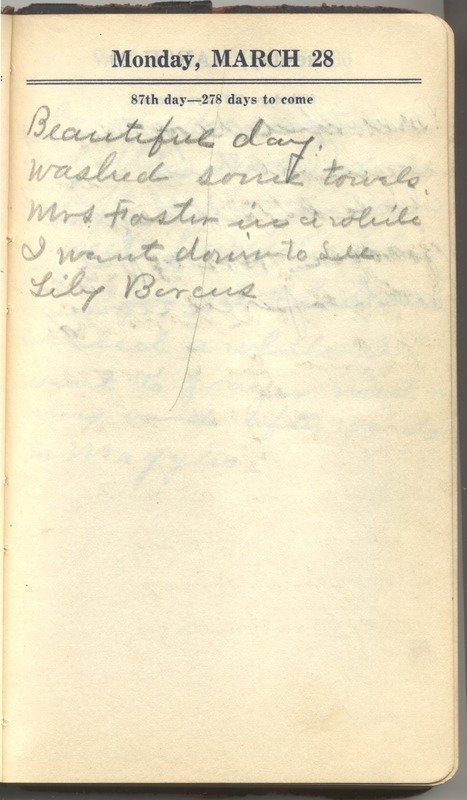 Monday, MARCH 28
87th day—278 days to come
Beautiful day.
Washed some towels.
Mrs Foster in a while
I went down to see
Lily Borcus